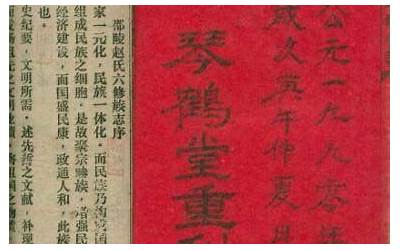 公元一九九零
歲次庚午仲夏
琴鶴堂重
邵陵赵氏六修族志序
家一元化,民族一体化。而民族乃构成国
组成民族之细胞。是故聚宗睦族,增强民
经济建设,而国盛民康,政通人和,此族
也。
史纪要,文明所需。述先哲之文献,补